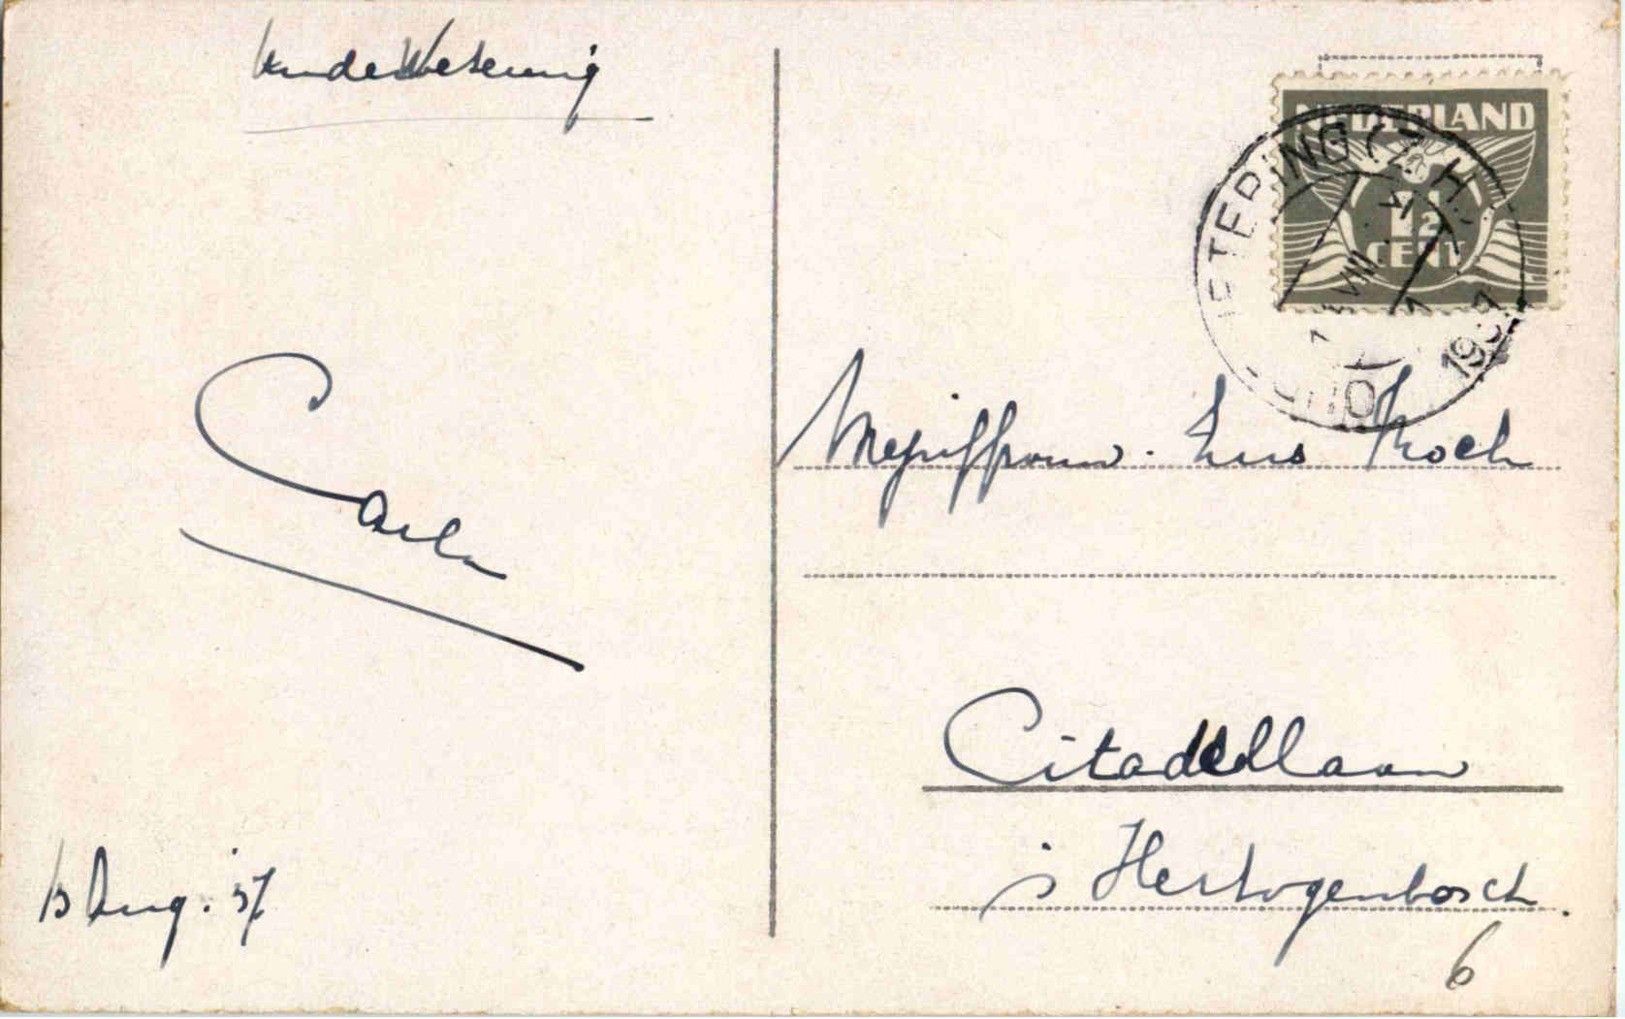 van de Wetering
Carla
13 Aug. '37
NEDERLAND
1½
CENT
ETERING (Z.H.)
VIII
1937
Mejuffrouw. Zus Koch
Citadellaan
's Hertogenbosch.
6